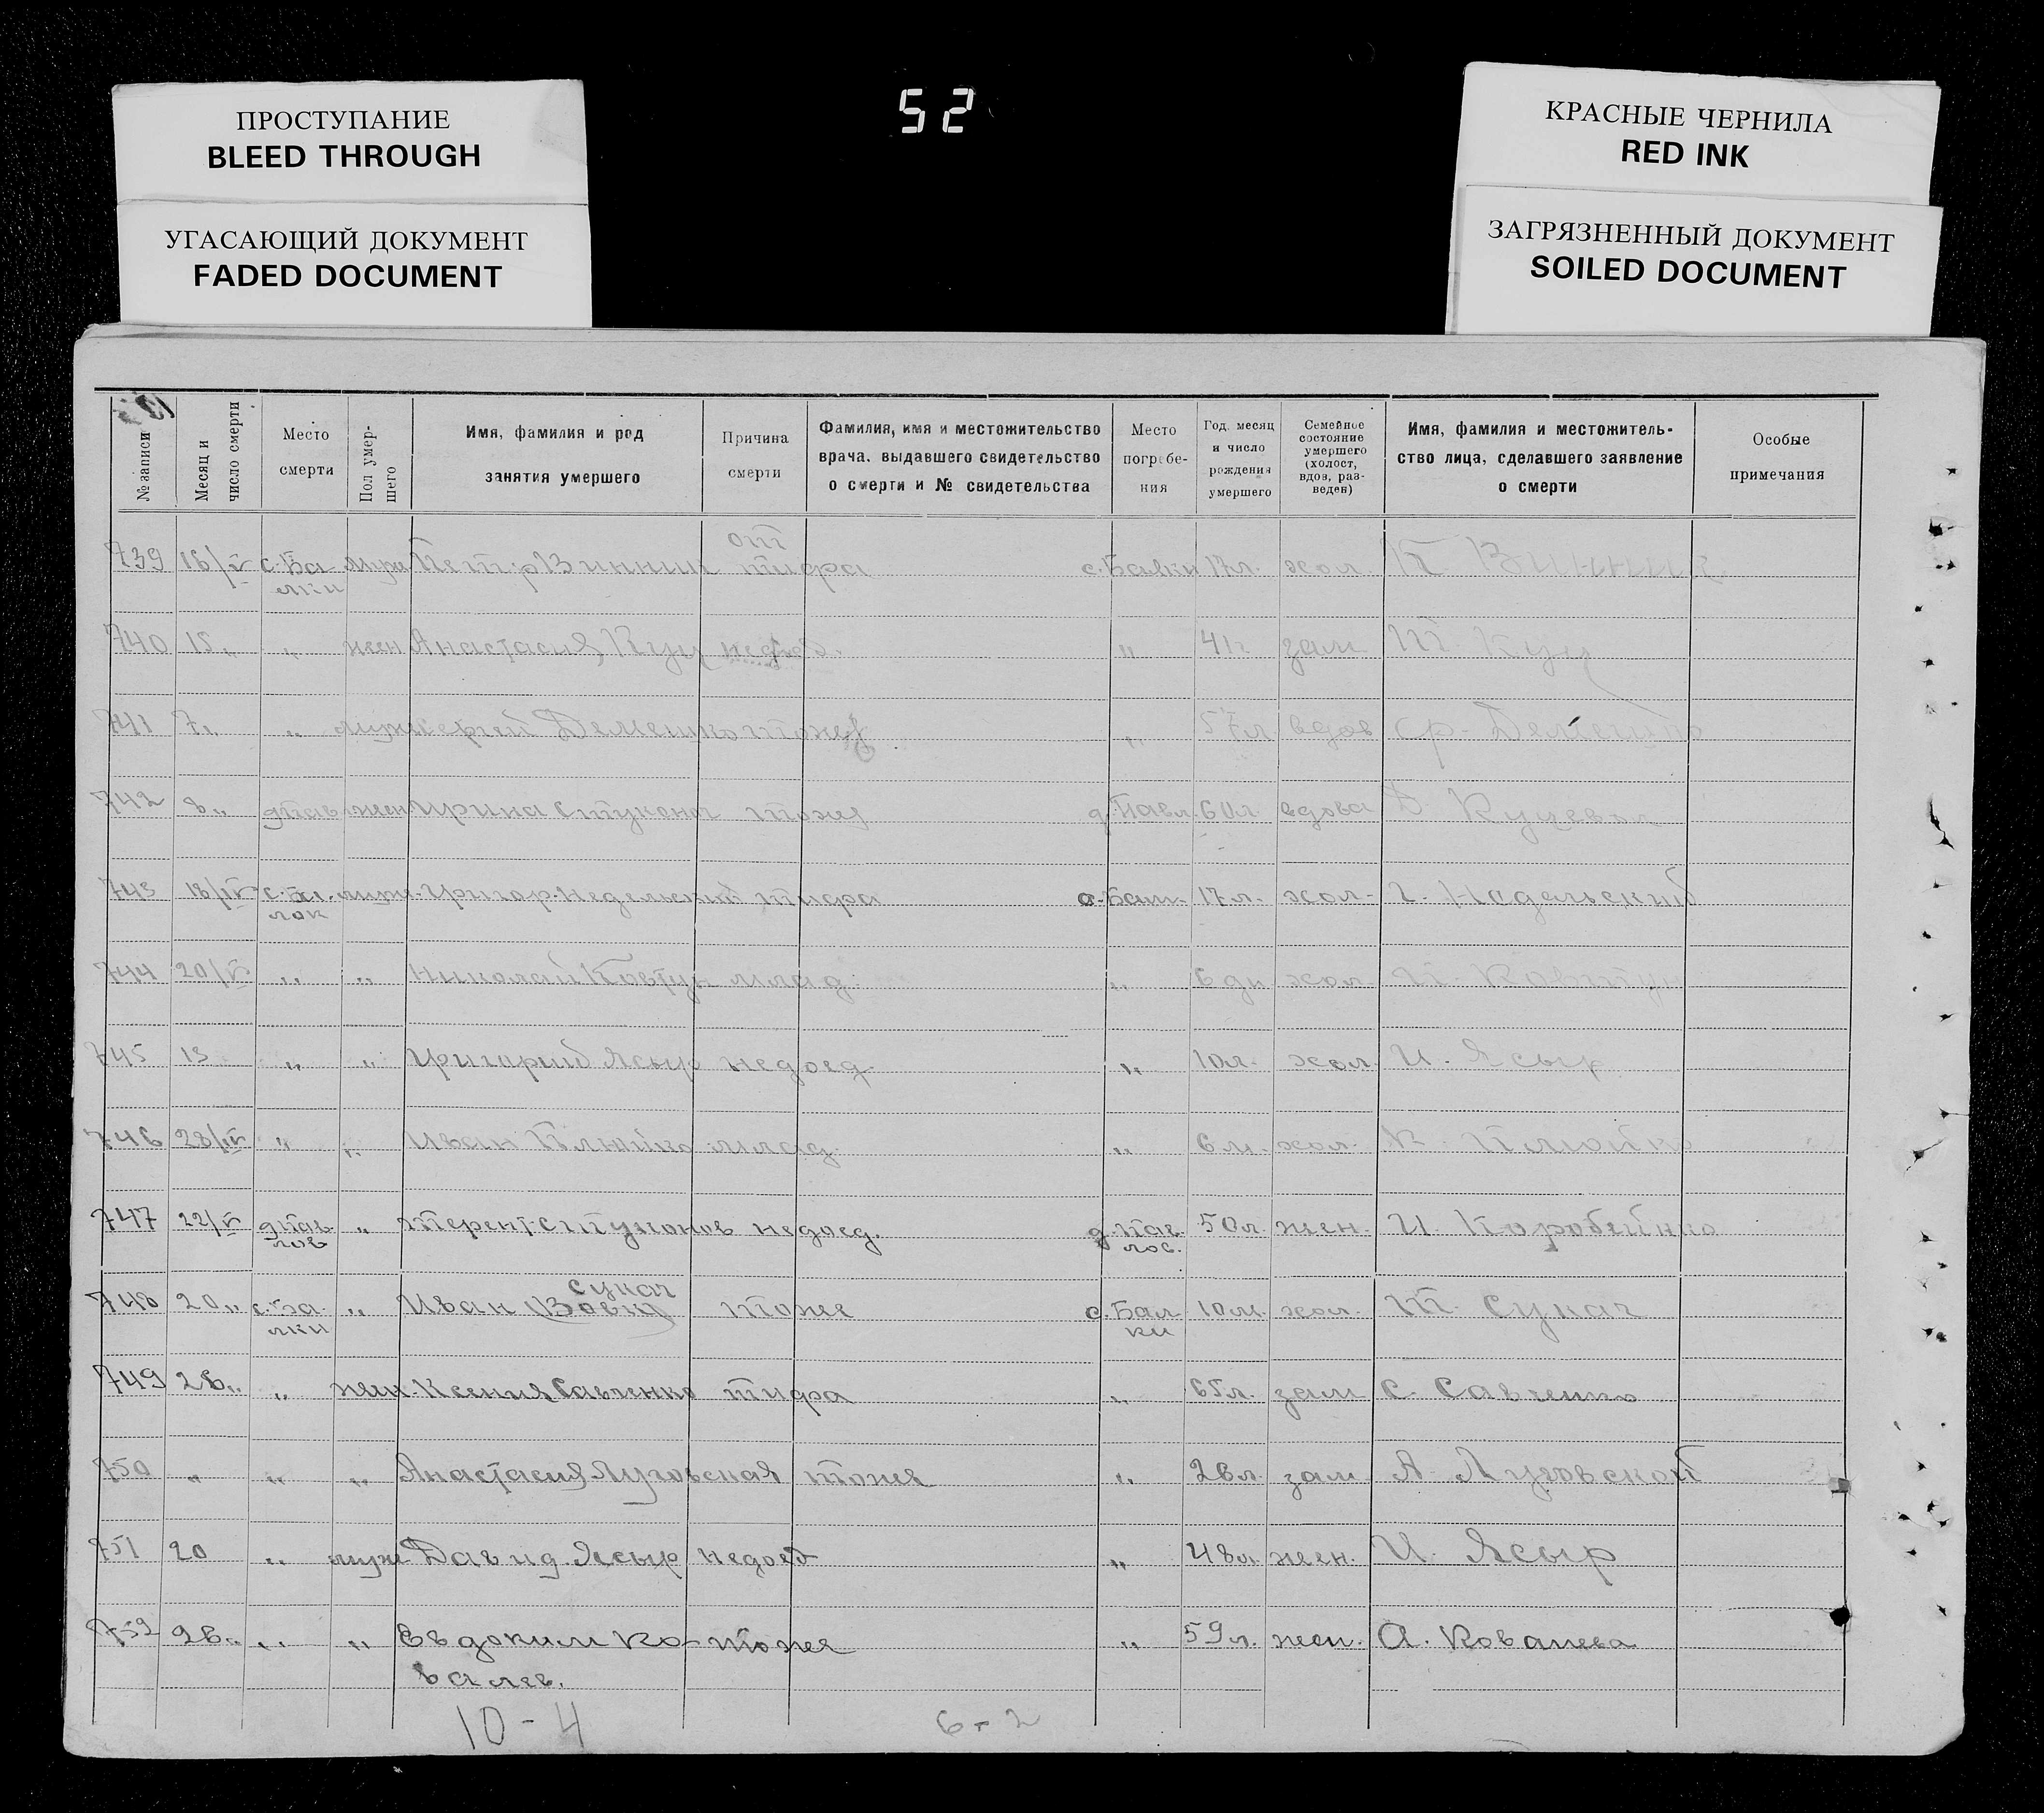 ПРОСТУПАНИЕ
BLEED THROUGH
УГАСАЮЩИЙ ДОКУМЕНТ
FADED DOCUMENT
52
КРАСНЫЕ ЧЕРНИЛА
RED INK
ЗАГРЯЗНЕННЫЙ ДОКУМЕНТ
SOILED DOCUMENT
№ записи
Месяц и
число смерти
Место
смерти
Пол умер-
шего
Имя, фамилия и род
занятия умершего
Причина
смерти
Фамилия, имя и местожительство
врача, выдавшего свидетельство
о смерти и № свидетельства
Место
погребе-
ния
Год, месяц
и число
рождения
умершего
Семейное
состояние
умершего
(холост,
вдов, раз-
веден)
Имя, фамилия и местожитель-
ство лица, сделавшего заявление
о смерти
Особые
примечания
от
739 16/V с. Ба муж Петр Винник тифа с. Балки 17л. хол. Винник
лки
740 15 „ „ жен Анастасия Куц „ 41г зам Куц
741 7 „ „ муж Сергей Демешко тоже „ 57л вдов Демешко
742 8 „ д Пав жен Ирина Стукона тоже д. Павл. 60л. вдова
743 18/IV муж. Григор. Недельский тифа 17л. хол. Г. Недельский
лок
744 20/V „ „ Николай Ковтун млад. „ 6 дн хол. Ковтун
745 13 „ „ Григорий Ясыр недоед „ 10л. хол. И. Ясыр
746 28/IV „ „ Иван Плюйко млад. „ 6 м. хол. Плюйко
747 22/V д Пав „ Терент. Стуконов недоед. д. Пав 50л. жен. И. Коробейнко
лов лов.
Сукач
748 20 „ с. Ба „ Иван тоже с. Бал 10м. хол. Т. Сукач
лки ки
749 26 „ „ жен. Ксения Савченко тифа „ 65л. зам С. Савченко
750 „ „ „ Анастасия Луговская тоже „ 26л. зам А. Луговской
751 20 „ муж Давид Ясыр недоед „ 48л. жен. И. Ясыр
752 26 „ „ „ Евдоким Ко- тоже „ 59л. жен. А. Ковалева
валев.
10-4 6-2